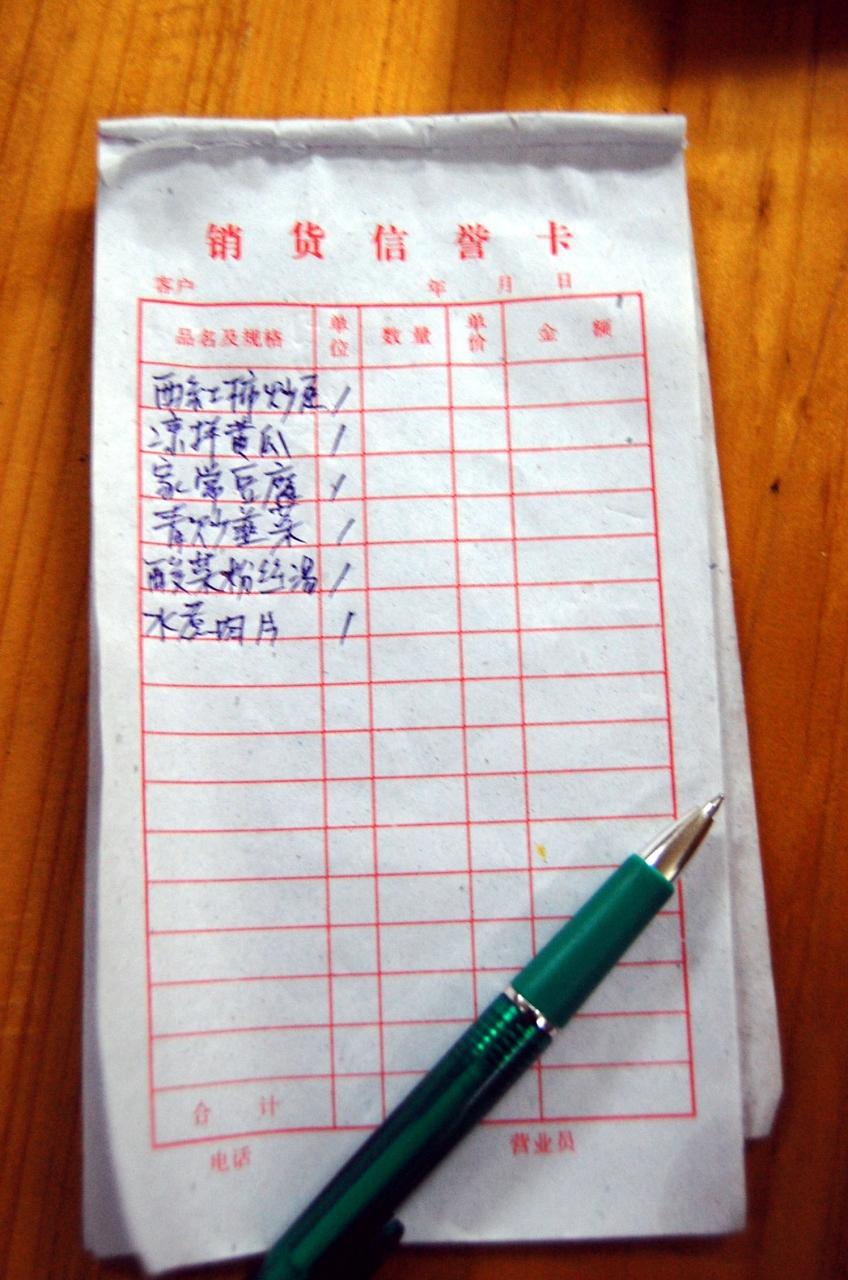 销货信誉卡
客户 年 月 日
品名及规格 单位 数量 单价 金额
西红柿炒豆 /
凉拌黄瓜 /
家常豆腐 /
青炒韭菜 /
酸菜粉丝汤 /
水煮肉片 /
合计
电话 营业员